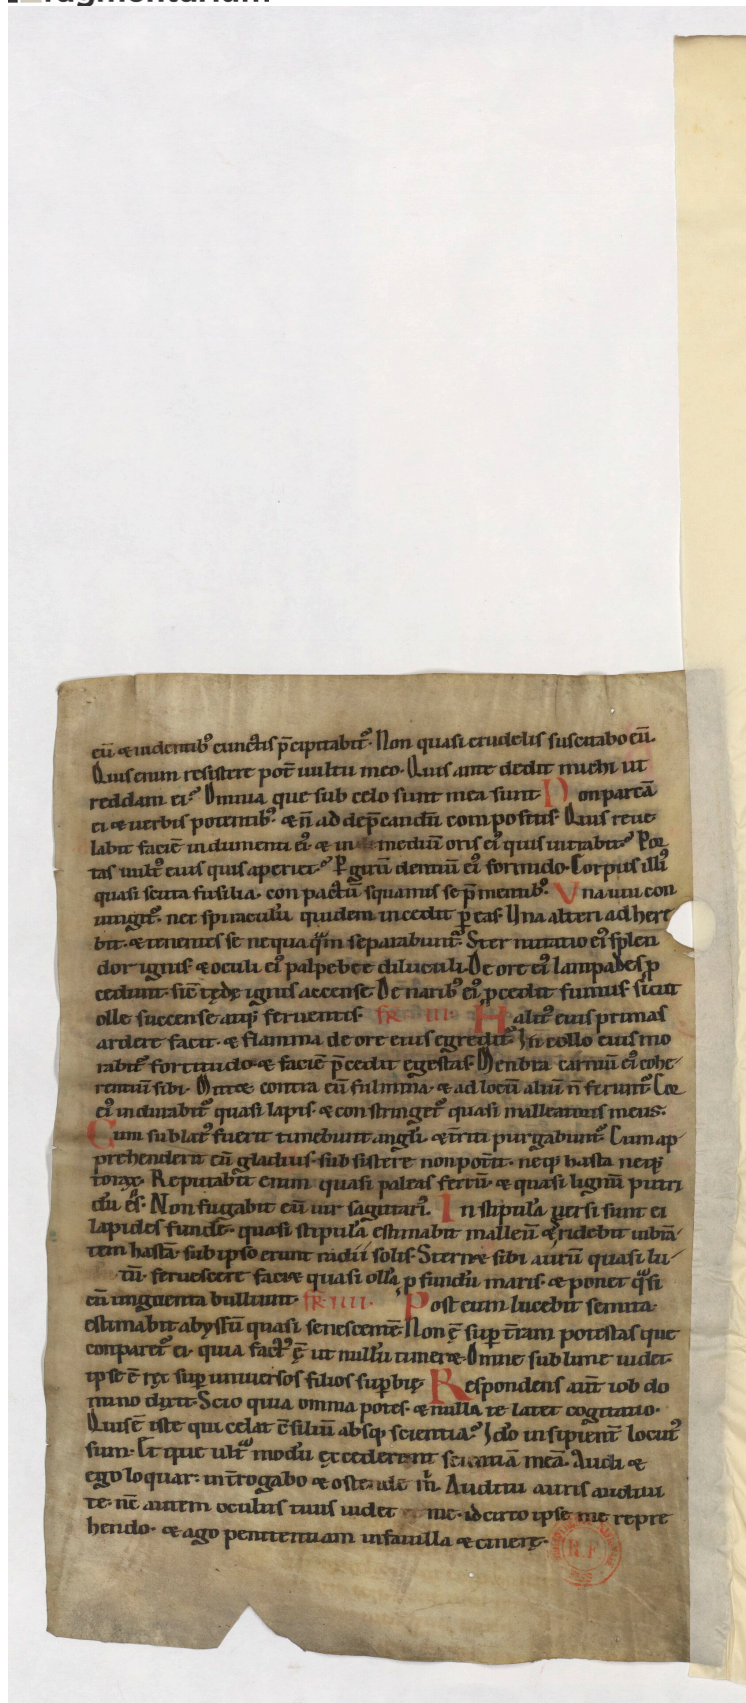 eū & uidentib᷒ cunctis p̄cipitabit᷒. Non quasi crudelis suscitabo eū.
Quis enim resistere pot̄ uultu meo. Quis ante dedit michi ut
reddam ei? Omnia que sub celo sunt mea sunt. Non parcā
ei & uerbis potentib᷒. & n̄ ad dep̄candū compositis. Quis reue
labit faciē indumenti ei᷒ & in medium oris ei᷒ quis intrabit? Por
tas uult᷒ eius quis aperiet? P girū dentiū ei᷒ formido. Corpus illi᷒
quasi scuta fusilia. con pactū squamis se p̄mentib᷒. Una uni con
iungit᷒. nec spiraculū quidem incedit p̱ eas. Una alteri adhere
bit. & tenentes se nequaqᷓm separabunt᷒. Sternutatio ei᷒ splen
dor ignis. & oculi ei᷒ palpebre diluculi. De ore ei᷒ lampades p
cedunt. sic̄ tędę ignis accense. De narib᷒ ei᷒ pcedit fumus sicut
olle succense atq; feruentis. fr̄. III. Halit᷒ eius prunas
ardere facit. & flamma de ore eius egredit᷒. In collo eius mo
rabit᷒ fortitudo. & faciē p̄cedit egestas. Menbra carniū ei᷒ cohe
rentiū sibi. Mittet contra eū fulmina. & ad locū aliū n̄ ferunt᷒. Cor
ei᷒ indurabit᷒ quasi lapis. & constringet᷒ quasi malleatoris meus.
Cum sublat᷒ fuerit timebunt angli. & t̄riti purgabunt᷒. Cum ap
prehenderit eū gladius. subsistere non pot̄it. neq; hasta neq;
torax. Reputabit enim quasi paleas ferrū. & quasi lignū putri
dū ęs. Non fugabit eū uir sagitari᷒. In stipulā uersi sunt ei
lapides funde. quasi stipulā estimabit malleū & ridebit uibrā
tem hastā. sub ipso erunt radii solis. Sternet sibi aurū quasi lu
tū. feruescere faciet quasi ollā p̱fundū maris. & ponet qᷓsi
cū unguenta bulliunt. fr̄. IIII. Post eum lucebit semita.
estimabit abyssū quasi senescentē. Non ē sup t̄ram potestas que
conparet᷒ ei. quia fact᷒ ē ut nullū timeret. Omne sublime uidet.
ipse ē rex sup uniuersos filios supbię. Respondens aut̄ iob do
mino dixit. Scio quia omnia potes. & nulla te latet cogitatio.
Quis ē iste qui celat c̄siliū absq; scientia? Ido insipient̄ locut᷒
sum. Et que ultᷓ modū excederent scientiā meā. Audi &
ego loquar. int̄rogabo & ostende m̄. Auditu auris audiui
te. nc̄ autem oculus tuus uidet me. idcirco ipse me repre
hendo. & ago penitentiam in fauilla & cinere.
R F